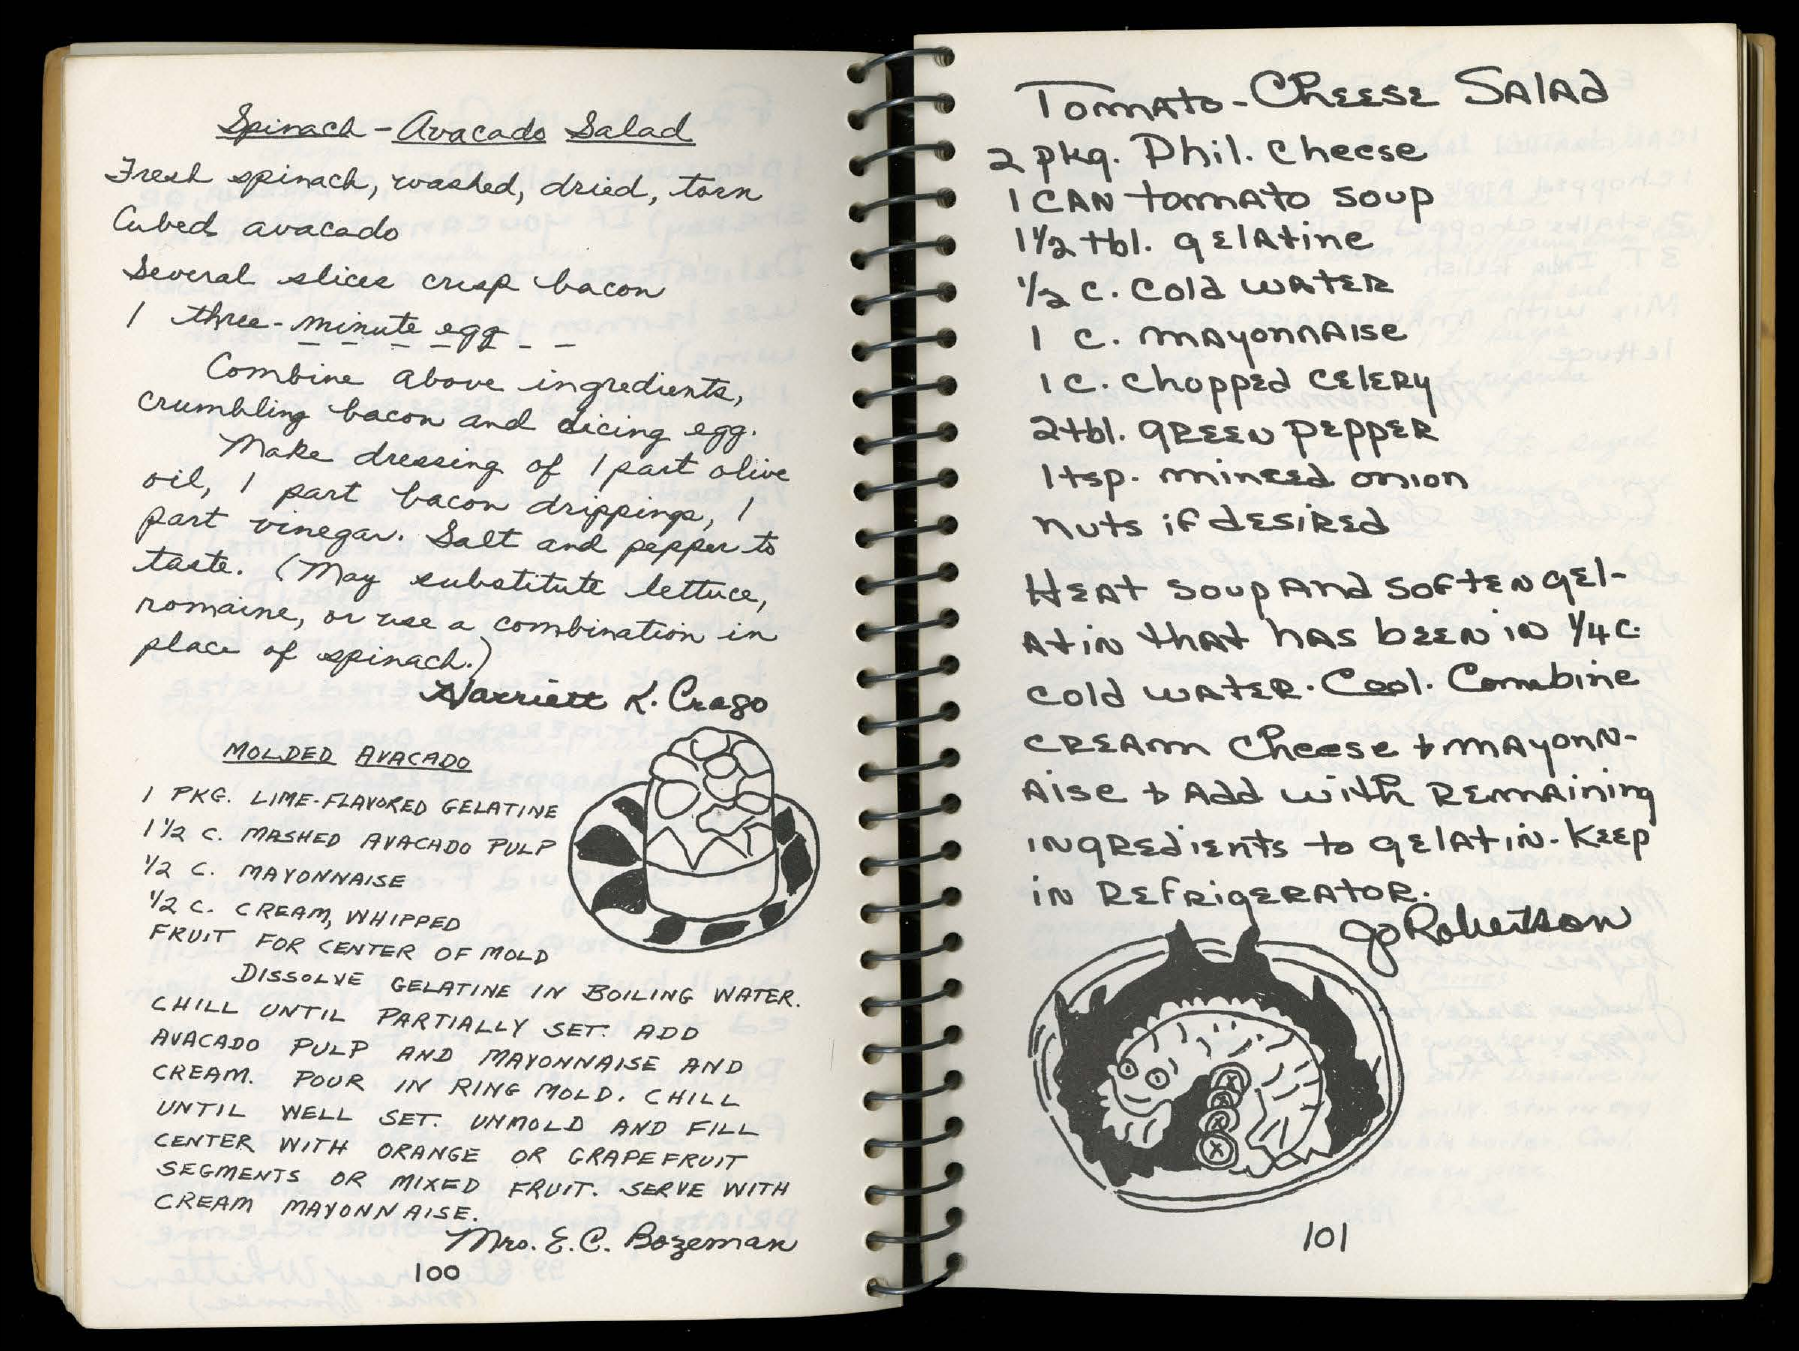 Spinach - Avacado Salad
Fresh spinach, washed, dried, torn
Cubed avacado
Several slices crisp bacon
1 three-minute egg
Combine above ingredients,
crumbling bacon and dicing egg.
Make dressing of 1 part olive
oil, 1 part bacon drippings, 1
part vinegar. Salt and pepper to
taste. (May substitute lettuce,
romaine, or use a combination in
place of spinach.)
Harriett K. Crago
MOLDED AVACADO
1 PKG. LIME-FLAVORED GELATINE
1 1/2 C. MASHED AVACADO PULP
1/2 C. MAYONNAISE
1/2 C. CREAM, WHIPPED
FRUIT FOR CENTER OF MOLD
DISSOLVE GELATINE IN BOILING WATER.
CHILL UNTIL PARTIALLY SET. ADD
AVACADO PULP AND MAYONNAISE AND
CREAM. POUR IN RING MOLD. CHILL
UNTIL WELL SET. UNMOLD AND FILL
CENTER WITH ORANGE OR GRAPEFRUIT
SEGMENTS OR MIXED FRUIT. SERVE WITH
CREAM MAYONNAISE.
Mrs. E.C. Bozeman
100
Tomato-Cheese Salad
2 pkg. Phil. Cheese
1 can tomato soup
1 1/2 tbl. gelatine
1/2 c. cold water
1 c. mayonnaise
1 c. chopped celery
2 tbl. green pepper
1 tsp. minced onion
nuts if desired
Heat soup and soften gel-
atin that has been in 1/4 c.
cold water. Cool. Combine
cream cheese + mayonn-
aise + add with remaining
ingredients to gelatin. Keep
in refrigerator.
Jo Robertson
101